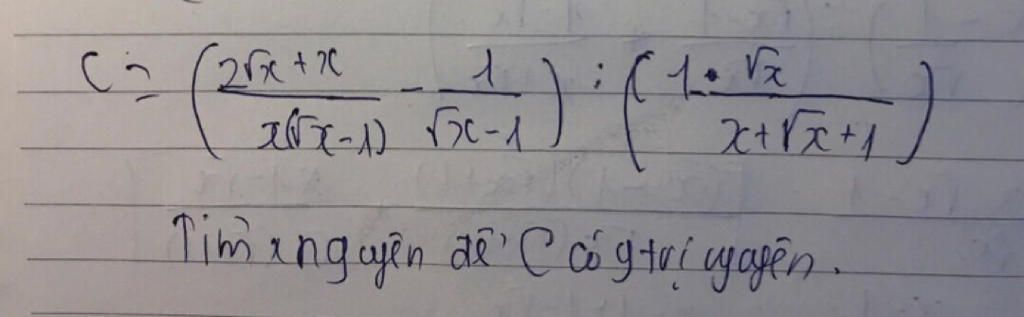 C = (2√x + x / x(√x - 1) - 1 / √x - 1) : (1 - √x / x + √x + 1)
Tìm x nguyên để C có gtrị nguyên.